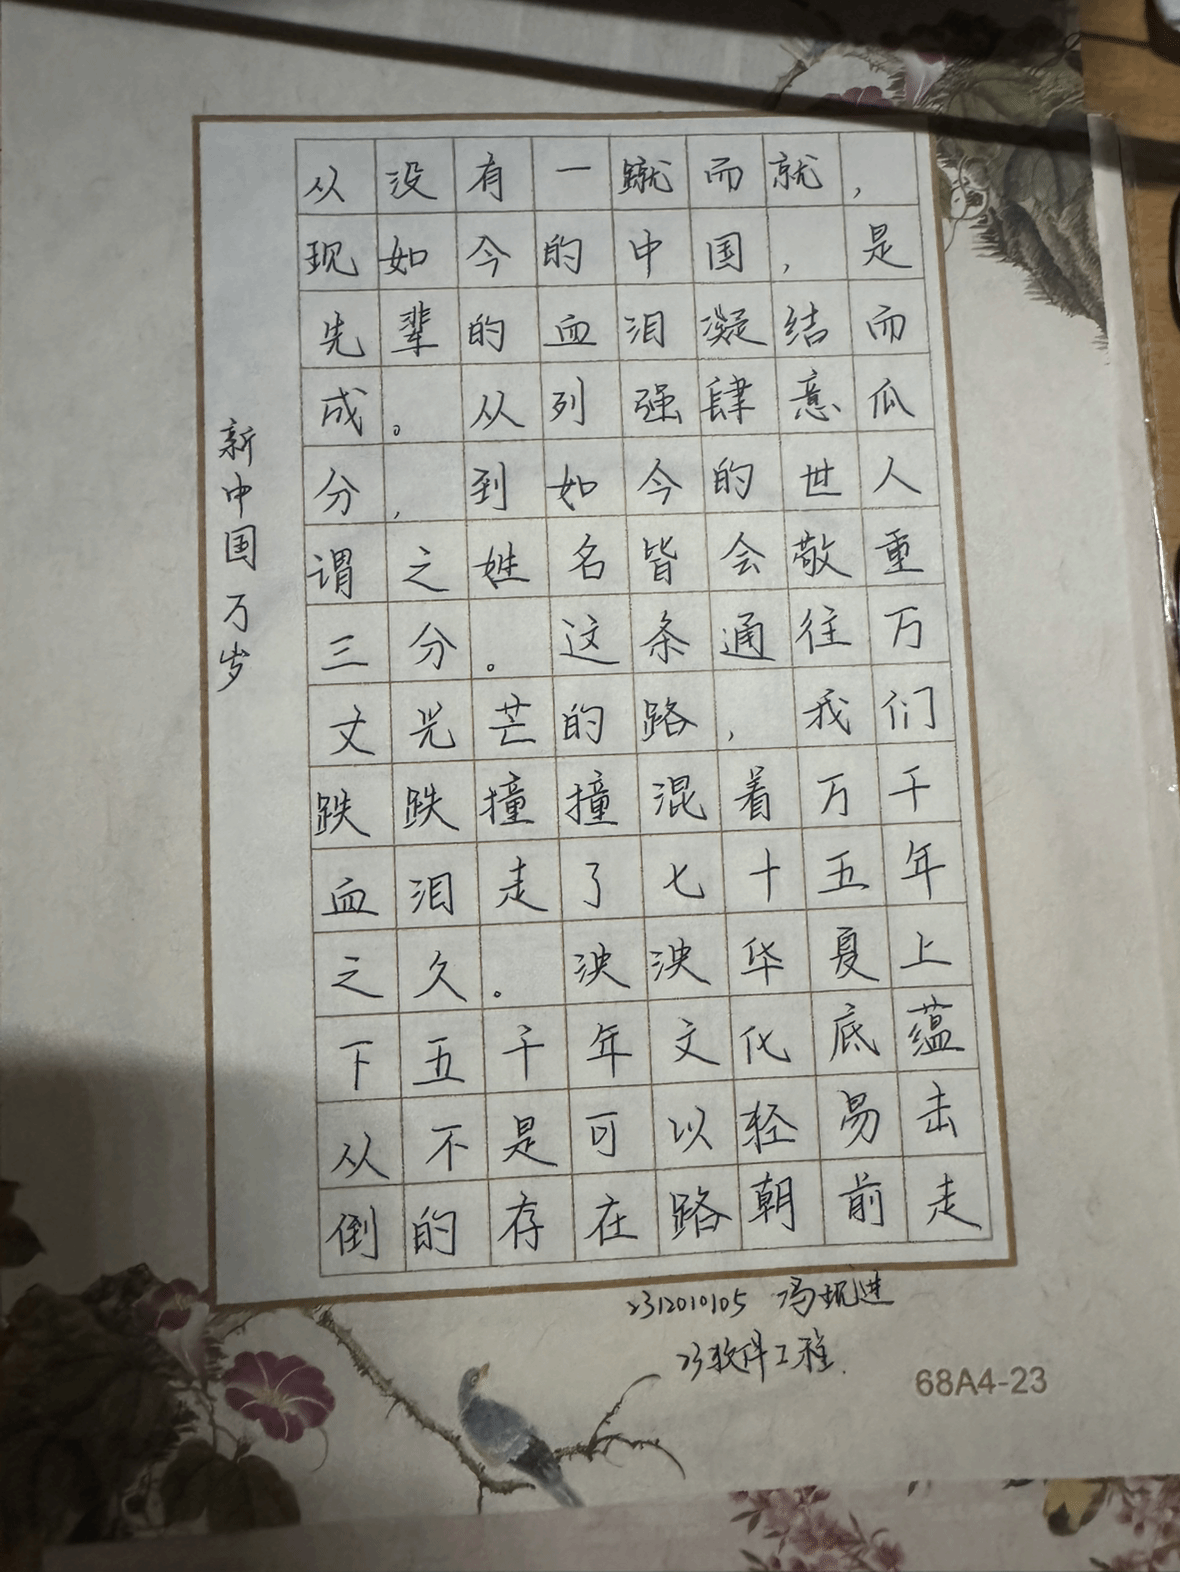 从没有一蹴而就，
现如今的中国，是
先辈的血泪凝结而
成。从列强肆意瓜
分，到如今的世人
谓之姓名皆会敬重
三分。这条通往万
丈光芒的路，我们
跌跌撞撞混着万千
血泪走了七十五年
之久。泱泱华夏上
下五千年文化底蕴
从不是可以轻易击
倒的存在路朝前走
新中国万岁
2312010105 冯现进
23软件工程.
68A4-23